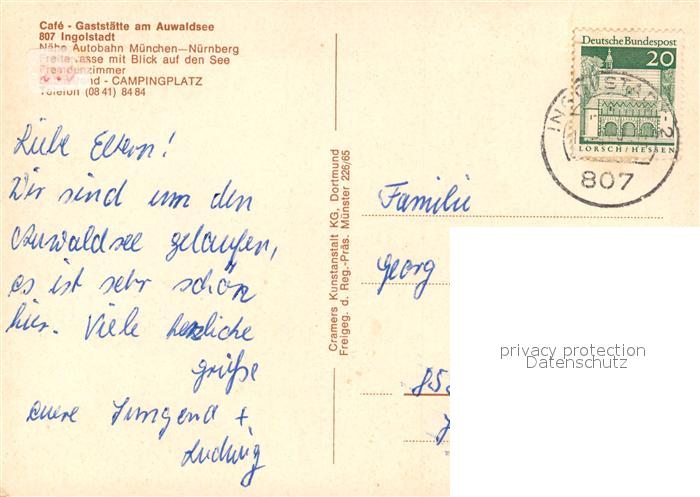 Café - Gaststätte am Auwaldsee
807 Ingolstadt
Nähe Autobahn München—Nürnberg
Freiterrasse mit Blick auf den See
Fremdenzimmer
CAMPINGPLATZ
Telefon (08 41) 84 84
Liebe Eltern!
Wir sind um den
Auwaldsee gelaufen,
es ist sehr schön
hier. Viele herzliche
grüße
euere Irmgard +
Ludwig
Cramers Kunstanstalt KG, Dortmund
Freigeg. d. Reg.-Präs. Münster 226/65
Deutsche Bundespost
20
LORSCH / HESSEN
INGOLSTADT 2
807
Familie
Georg
85
privacy protection
Datenschutz